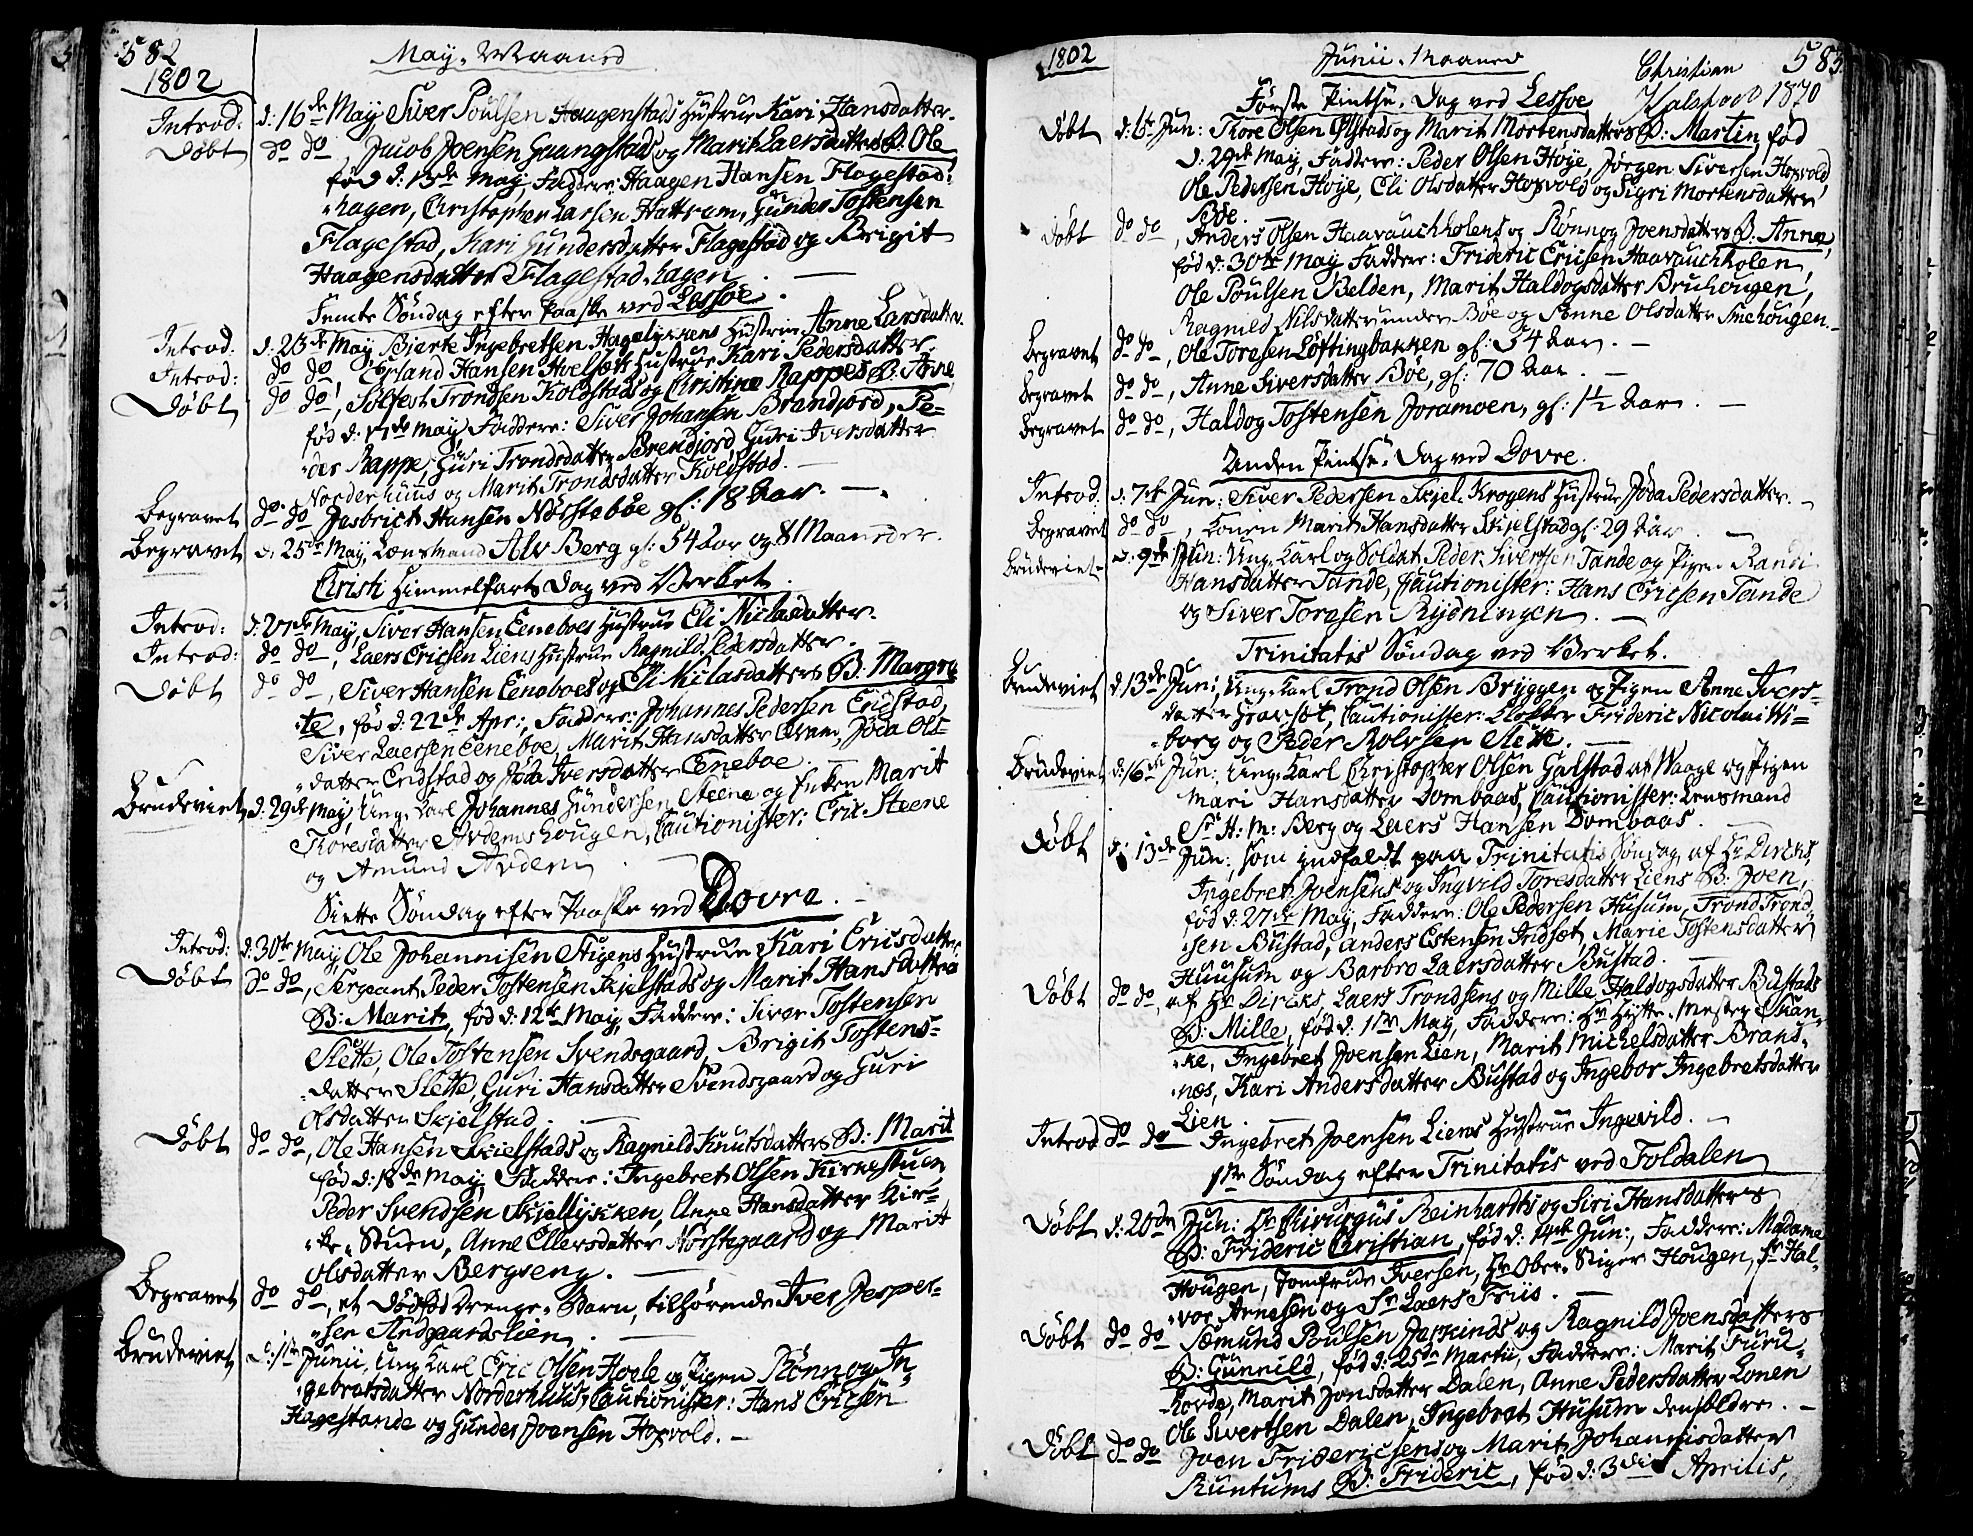 582
May, Maaned
1802
Introd: d: 16de May, Siver Poulsen Haagenstads Hustrue Kari Hansdatter.
Døbt do do, Jacob Joensen Guangstads og Marit Laersdatters B: Ole
fød d: 13de May, Faddere: Haagen Hansen Flagestad-
hagen, Christopher Larsen Hattrem, Gunder Tostensen
Flagestad, Kari Gundersdatter Flagestad og Brigit
Haagensdatter Flagestad-hagen. —
Femte Søndag efter Paaske ved Lessøe.
Introd: d: 23de May, Bjerte Ingebretsen Hagelykkens Hustrue Anne Larsdatter.
Introd: do do Erland Hansen Hvelsæts Hustrue Kari Pedersdatter
Døbt do do, Sølfest Trondsen Kolstads og Christine Rappes B: Ane
fød d: 17de May, Faddere: Siver Johansen Brandjord, Pe-
der Rappe, Guri Trondsdatter Brendjord, Guri Iversdatter
Norderhuus og Marit Trondsdatter Kolstad. —
Begravet do do Jesbrict Hansen Norstebøe gl: 18 Aar. —
Begravet d. 25de May, Lænsmand Alv Berg gl: 54 Aar og 8 Maaneder.
Christi Himmelfarts Dag ved Verket.
Introd: d: 27de May, Siver Hansen Eeneboes Hustrue Eli Niclasdatter.
Introd: do do, Laers Ericsen Liens Hustrue Ragnild Pedersdatter. —
Døbt do do, Siver Hansen Eeneboes og Eli Niclasdatters B: Margre
te, fød d: 22de Apr:, Faddere: Johannes Pedersen Eridstad,
Siver Laersen Eeneboe, Marit Hansdatter Øram, Jøda Ols-
datter Eridstad og Jøda Iversdatter Eeneboe. —
Brudeviet d: 29de May, Ung-Karl Johannes Gundersen Steene og Enken Marit
Thoresdatter Ardemshougen, Cautionister: Eric Steene
og Amund Ardem —
Siette Søndag efter Paaske ved Dovre. —
Introd: d: 30te May, Ole Johannisen Stigens Hustrue Kari Ericsdatter
Døbt do do, Sergeant Peder Tostensen Skjelstads og Marit Hansdatters
B: Marit, fød d: 12te May, Faddere: Siver Tostensen
Slette, Ole Tostensen Svendsgaard, Brigit Tostens-
datter Slette, Guri Hansdatter Svendsgaard og Guri
Olsdatter Skjelstad. —
Døbt do do, Ole Hansen Skielstads og Ragnild Knutsdatters B: Marit
fød d: 18de May, Faddere: Ingebret Olsen Kirkestuen
Peder Svendsen Skiellykken, Anne Hansdatter Kir-
ke-Stuen, Anne Ellersdatter Norstegaard og Marit
Olsdatter Bergseng. —
Begravet do do, et Dødfød Drenge-Barn, tilhørende Iver Jesper-
sen Andgaardslien. —
Brudeviet d: 1te Junii, Ung Karl Eric Olsen Hoele og Pigen Rønnog In-
gebretsdatter Norderhuus, Cautionister: Hans Ericsen
Hagestande og Gunder Joensen Hoxvold. —
1802
Junii-Maaned
583
Christian
Kalstad 1870
Første Pintse-Dag ved Lessøe
Døbt d: 6te Jun: Tore Olsen Ølstads og Marit Mortensdatters B: Martin, fød
d: 29de May, Faddere: Peder Olsen Høye, Jørgen Siversen Hoxvold,
Ole Pedersen Høye, Eli Olsdatter Hoxvold og Sigri Mortensdatter
Bøe.
Døbt do do, Anders Olsen Haavauchholens og Rønnog Joensdatters B: Anne,
fød d: 30te May, Faddere: Frideric Ericsen Haavauchholen,
Ole Poulsen Belden, Marit Haldogsdatter Bruhougen,
Ragnild Nilsdatter under Bøe og Anne Olsdatter Smehougen. —
Begravet do do, Ole Toresen Løftingbakken gl: 54 Aar. —
Begravet do do, Anne Siversdatter Bøe, gl: 70 Aar. —
Begravet do do, Haldog Tostensen Joramoen, gl: 1½ Aar. —
Anden Pintse-Dag ved Dovre.
Introd: d: 7de Jun: Siver Pedersen Skjel-Krogens Hustrue Jøda Pedersdatter. —
Begravet do do, Konen Marit Hansdatter Skjelstad gl: 29 Aar. —
Brudeviet d: 9de Jun: Ung-Karl og Soldat Peder Sivertsen Tande og Pigen Randi
Hansdatter Tande, Cautionister: Hans Ericsen Tande
og Siver Toresen Rydningen. —
Trinitatis Søndag ved Verket.
Brudeviet d: 13de Jun: Ung-Karl Trond Olsen Bryggen og Pigen Anne Ivers-
datter Gravset, Cautionister: Klokker Frideric Nicolai Wi-
borg og Peder Rolvsen Slette. —
Brudeviet d: 16de Jun: Ung-Karl Christopher Olsen Galstad af Waage og Pigen
Mari Hansdatter Dombaas, Cautionister: Lensmand
Sr H: M: Berg og Laers Hansen Dombaas. —
Døbt d: 13de Jun: som indfaldt paa Trinitatis Søndag af Hr Dircks,
Ingebret Joensens og Ingvild Toresdatter Liens B: Joen,
fød d: 27de May, Faddere: Ole Pedersen Husum, Trond Trond-
sen Bustad, Anders Estensen Iridsæt, Marie Tostensdatter
Huusum og Barbro Laersdatter Bustad. —
Døbt do do, af Hr Dircks, Laers Trondsens og Mille Haldogsdatter Bustads
B: Mille, fød d: 1te May, Faddere: Hr Hytte-Mester Skan-
ke, Ingebret Joensen Lien, Marit Michelsdatter Brans-
næs, Kari Andersdatter Bustad og Ingebor Ingebretsdatter
Lien. —
Introd: do do Ingebret Joensen Liens Hustrue Ingevild. —
1te Søndag efter Trinitatis ved Foldalen
Døbt d: 20de Jun: Hr Chirurgus Reinhardts og Siri Hansdatters
B: Frideric Christian, fød d: 14de Jun:, Faddere: Madame
Hougen, Jomfrue Iversen, Hr Ober-Stiger Hougen, Sr Hal-
vor Arnesen og Sr Laers Friis. —
Døbt do do Sæmund Poulsen Jorkinds og Ragnild Joensdatters
B: Gunnild, fød d: 25de Martii, Faddere: Marit Furu-
korde, Marit Jonsdatter Dalen, Anne Pedersdatter Lonen
Ole Sivertsen Dalen, Ingebret Husum den ældre. —
Døbt do do Joen Fridericsens og Marit Johannisdatter
Runtums B: Frideric, fød d: 3die Aprilis,